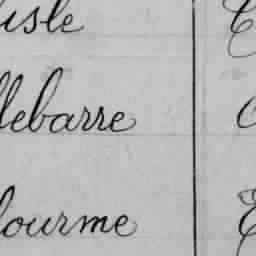 isle
llebarre
lourme